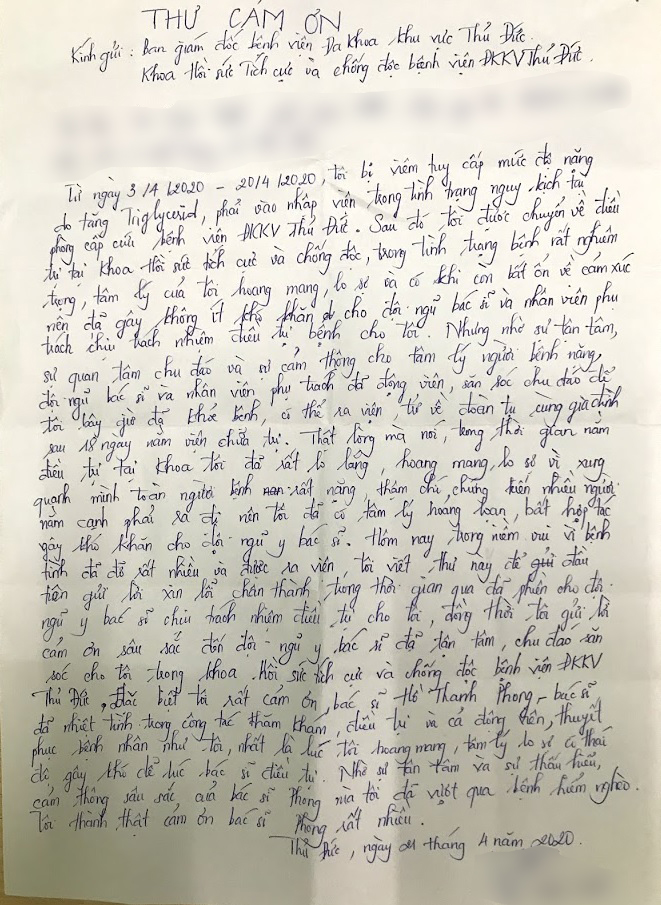 THƯ CẢM ƠN
Kính gửi: Ban giám đốc bệnh viện Đa khoa khu vực Thủ Đức.
Khoa Hồi sức Tích cực và chống độc bệnh viện ĐKKV Thủ Đức.
Từ ngày 3/4/2020 - 20/4/2020, tôi bị viêm tụy cấp mức độ nặng
do tăng Triglycerid, phải vào nhập viện trong tình trạng nguy kịch tại
phòng cấp cứu bệnh viện ĐKKV Thủ Đức. Sau đó tôi được chuyển về điều
trị tại Khoa Hồi sức tích cực và chống độc, trong tình trạng bệnh rất nghiêm
trọng, tâm lý của tôi hoang mang, lo sợ và có khi còn bất ổn về cảm xúc
nên đã gây không ít khó khăn cho đội ngũ bác sĩ và nhân viên phụ
trách chịu trách nhiệm điều trị bệnh cho tôi. Nhưng nhờ sự tận tâm,
sự quan tâm chu đáo và sự cảm thông cho tâm lý người bệnh nặng,
đội ngũ bác sĩ và nhân viên phụ trách đã động viên, săn sóc chu đáo để
tôi bây giờ đã khỏe bệnh, có thể ra viện, trở về đoàn tụ cùng gia đình
sau 18 ngày nằm viện chữa trị. Thật lòng mà nói, trong thời gian nằm
điều trị tại khoa tôi đã rất lo lắng, hoang mang, lo sợ vì xung
quanh mình toàn người bệnh rất nặng, thậm chí, chứng kiến nhiều người
nằm cạnh phải ra đi nên tôi đã có tâm lý hoang loạn, bất hợp tác
gây khó khăn cho đội ngũ y bác sĩ. Hôm nay trong niềm vui vì bệnh
tình đã đỡ rất nhiều và được ra viện, tôi viết thư này để gửi đầu
tiên gửi lời xin lỗi chân thành trong thời gian qua đã phiền cho đội
ngũ y bác sĩ chịu trách nhiệm điều trị cho tôi, đồng thời tôi gửi lời
cảm ơn sâu sắc đến đội ngũ y bác sĩ đã tận tâm, chu đáo săn
sóc cho tôi trong khoa Hồi sức tích cực và chống độc bệnh viện ĐKKV
Thủ Đức, Đặc biệt tôi rất cảm ơn bác sĩ Hồ Thanh Phong - bác sĩ
đã nhiệt tình trong công tác thăm khám, điều trị và cả động viên, thuyết
phục bệnh nhân như tôi, nhất là lúc tôi hoang mang, tâm lý lo sợ có thái
độ gây khó dễ lúc bác sĩ điều trị. Nhờ sự tận tâm và sự thấu hiểu,
cảm thông sâu sắc của bác sĩ Phong mà tôi đã vượt qua bệnh hiểm nghèo.
Tôi thành thật cảm ơn bác sĩ Phong rất nhiều.
Thủ Đức, ngày 21 tháng 4 năm 2020.